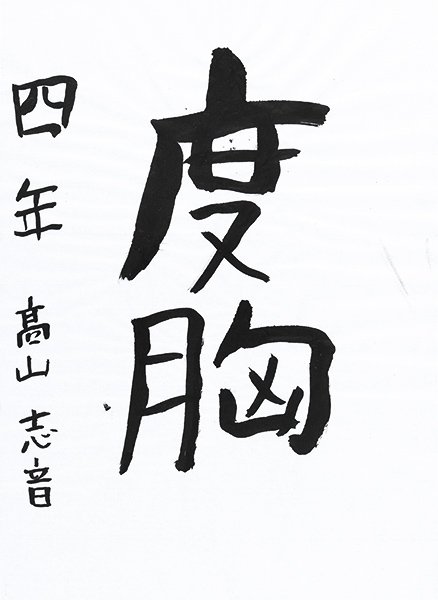 度胸
四年 髙山志音